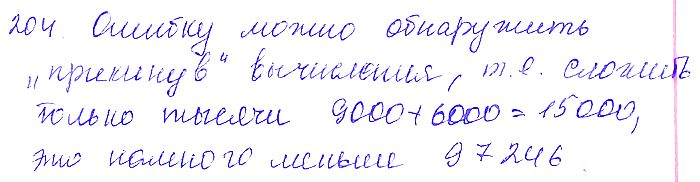 204. Ошибку можно обнаружить
„прикинув“ вычисления, т.е. сложить
только тысячи 9000+6000=15000,
это намного меньше 97246